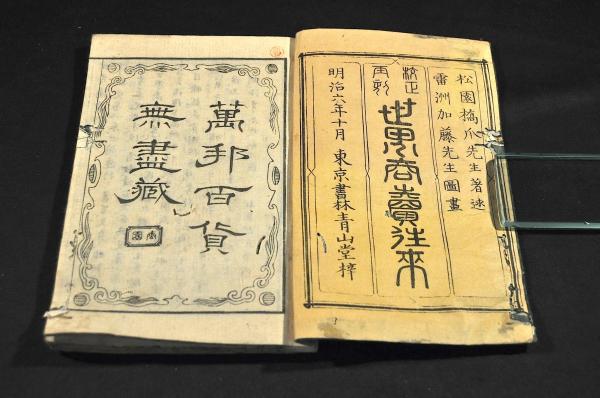 松園橋爪先生著述
雷洲加藤先生圖畫
校正
再刻
世界商賣往来
明治六年十月 東京書林青山堂梓
萬邦百貨
無盡藏